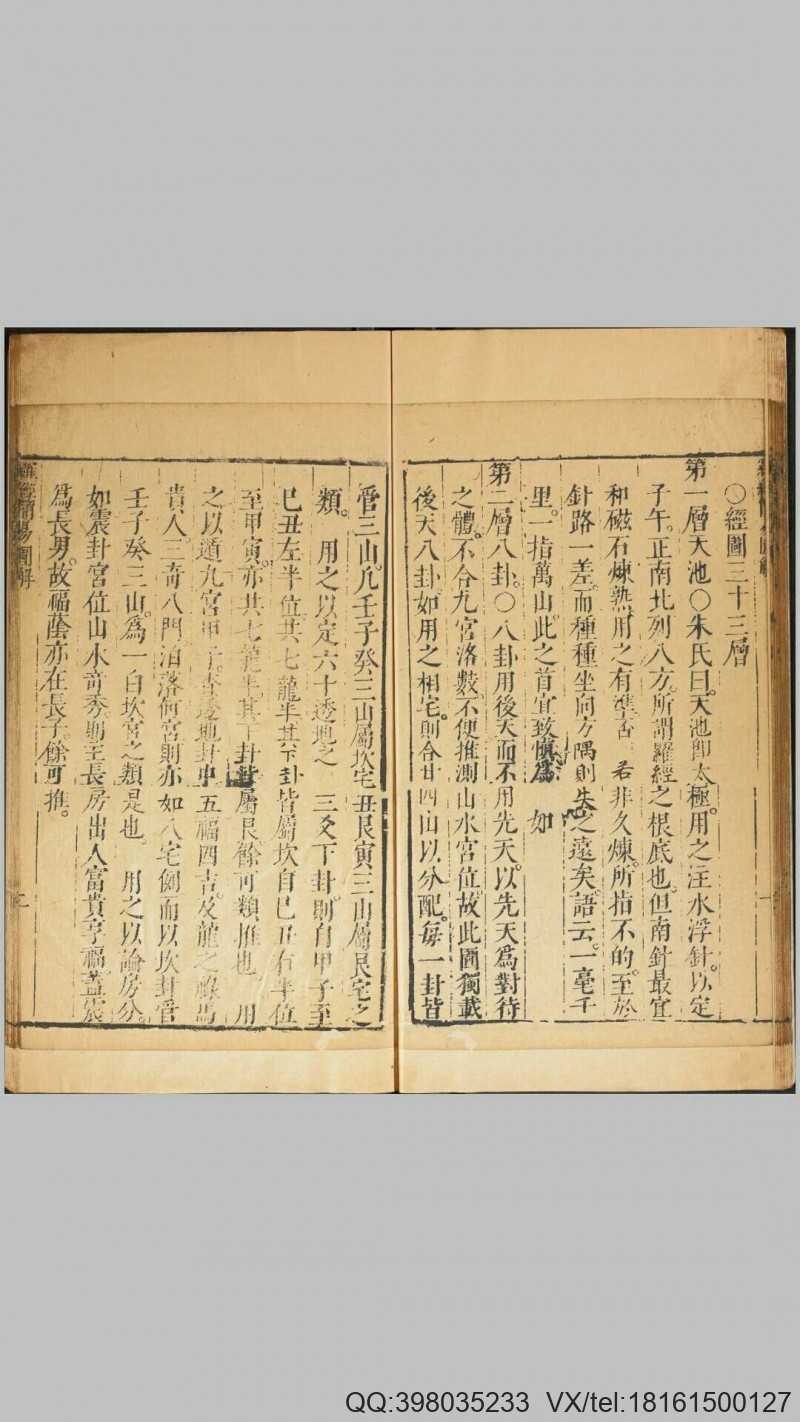 ○經圖三十三層
第一層天池○朱氏曰天池即太極。用之注水浮針。以定
子午。正南北列八方。所謂羅經之根底也。但南針最宜
和磁石煉熟。用之有準否若非久煉。所指不的。至於
針路一差。而種種坐向方隅則失之遠矣。語云。一毫千
里。一指萬山。此之首宜致慎焉如
第二層八卦。○八卦用後天而不用先天。以先天爲對待
之體。不合九宮洛數。不便推測山水宮位。故此圖獨載
後天八卦。如用之相宅。則合廿四山以分配。每一卦皆
管三山。凡壬子癸三山屬坎宅丑艮寅三山屬艮宅之
類。用之以定六十透地之三爻下卦。則自甲子至
己丑左半位共七龍半其下卦皆屬坎自己丑右半位
至甲寅。亦共七龍半其下卦屬艮餘可類推也用
之以遁九宮甲子。李透地卦中五福四吉。及龍之祿馬
貴人。三奇八門泊落何宮則亦如八宅例而以坎卦管
壬子癸三山。爲一白坎宮之類是也。用之以論房分。
如震卦宮位山水奇秀。則主長房出人富貴享福。蓋震
爲長男。故福蔭亦在長子。餘可推。
二
QQ:398035233 VX/tel:18161500127